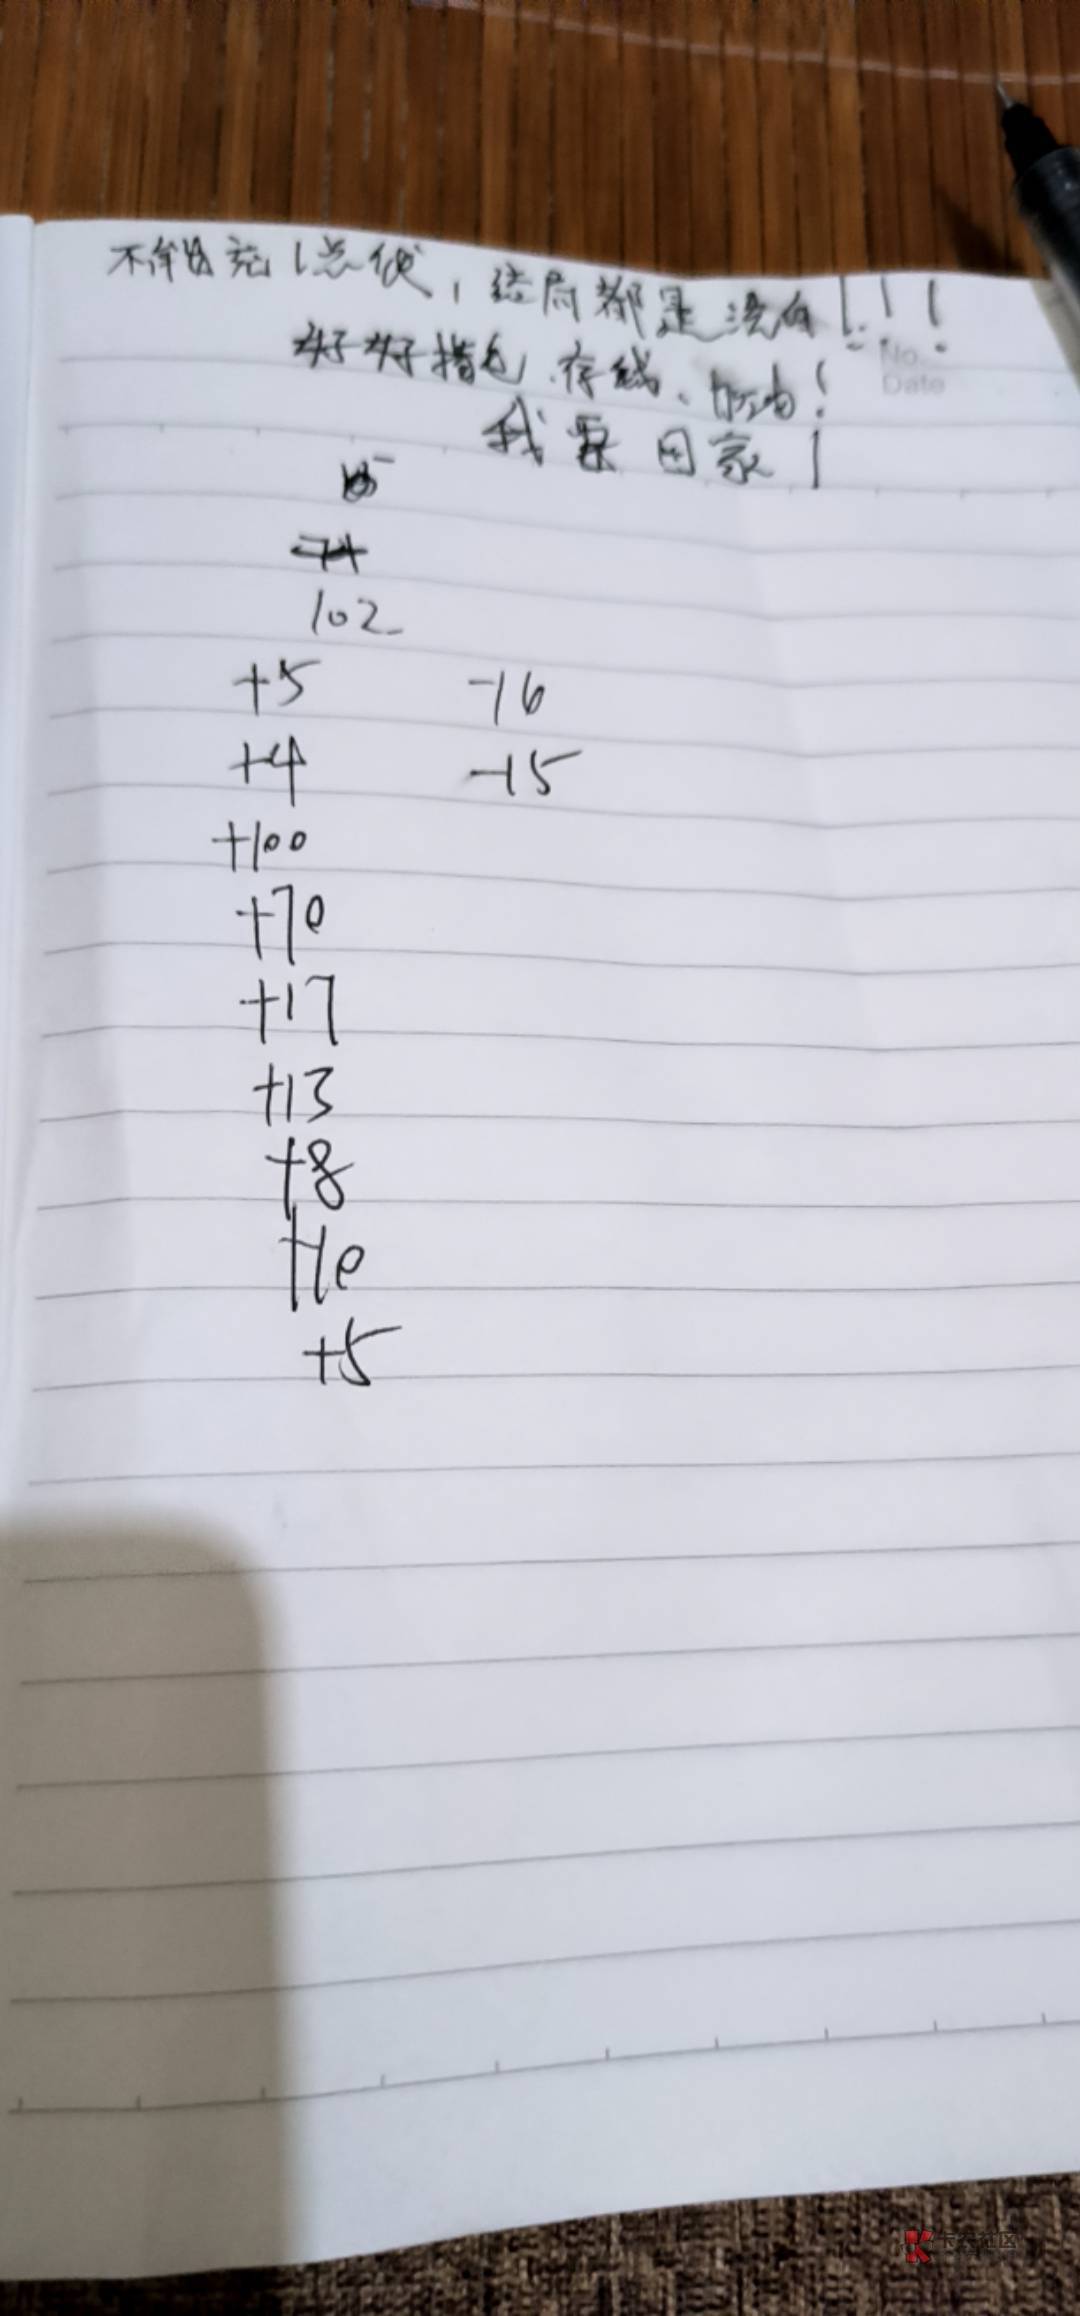 不能贷充1点钱，结局都是没有！！！
No.
Date
好好撸毛、存钱、加油！
我要回家！
102
+5 -16
+4 -15
+100
+70
+17
+13
+8
+10
+5
卡农社区